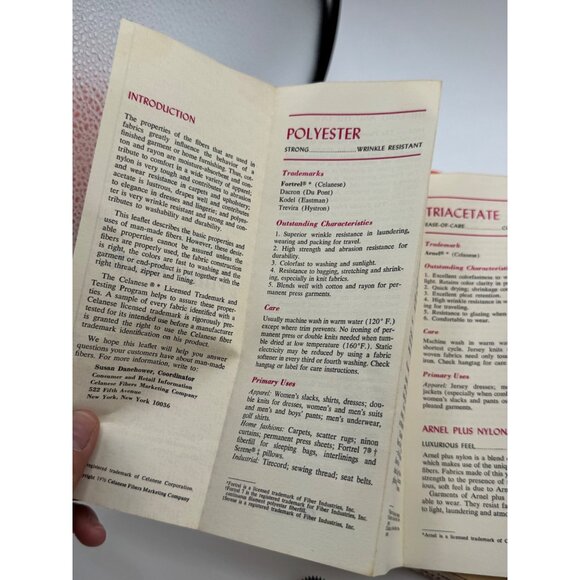 INTRODUCTION
The properties of the fibers that are used in
fabrics greatly influence the behavior of a
finished garment or home furnishing. Thus, cot-
ton and rayon are moisture-absorbent and con-
tribute to comfort in a wide variety of apparel;
nylon is very tough and contributes to abrasion
and wear resistance in carpets and upholstery;
acetate is lustrous, drapes well and contributes
to elegance in dresses and lingerie; and polyes-
ter contributes to washability and durability.
This leaflet describes the basic properties and
uses of man-made fibers. However, these desir-
able properties cannot be assured unless the
fibers are properly used, the fabric construction
is right, the colors are fast to washing and the
garment or end-product is put together with the
right thread, zipper and lining.
The Celanese ® * Licensed Trademark and
Testing Program helps to assure these proper-
ties. A sample of every fabric identified with a
Celanese licensed trademark is rigorously pre-
tested for its intended use before a manufacturer
is granted the right to use the Celanese fiber
trademark identification on his product.
We hope this leaflet will help you answer
questions your customers have about man-made
fibers. For more information, write to:
Susan Danehower, Coordinator
Consumer and Retail Information
Celanese Fibers Marketing Company
522 Fifth Avenue
New York, New York 10036
registered trademark of Celanese Corporation.
1970 Celanese Fibers Marketing Company
POLYESTER
STRONG..................WRINKLE RESISTANT
Trademarks
Fortrel® * (Celanese)
Dacron (Du Pont)
Kodel (Eastman)
Trevira (Hystron)
Outstanding Characteristics
1. Superior wrinkle resistance in laundering,
wearing and packing for travel.
2. High strength and abrasion resistance for
durability.
3. Colorfast to washing and sunlight.
4. Resistance to bagging, stretching and shrink-
ing, especially in knit fabrics.
5. Blends well with cotton and rayon for per-
manent press garments.
Care
Usually machine wash in warm water (120° F.)
except where trim prevents. No ironing of per-
manent press or double knits needed when tum-
ble dried at low temperature (160°F.). Static
electricity may be reduced by using a fabric
softener in every third or fourth washing. Check
hangtag or label for care instructions.
Primary Uses
Apparel: Women's slacks, shirts, dresses; dou-
ble knits for dresses, women's and men's suits
and men's and boys' pants; men's underwear,
golf shirts.
Home fashions: Carpets, scatter rugs; ninon
curtains; permanent press sheets; Fortrel 7®†
fiberfill for sleeping bags, interlinings and
pillows.
Industrial: Tirecord; sewing thread; seat belts.
*Fortrel is a licensed trademark of Fiber Industries, Inc.
†Fortrel 7 is the registered trademark for Fiber Industries, Inc.
continuous filament polyester fiberfill.
is a registered trademark of Fiber Industries, Inc.
TRIACETATE
EASE-OF-CARE
Trademark
Arnel® * (Celanese)
Outstanding Characteristics
1. Excellent colorfastness to
lar. Retains color clarity in
2. Quick drying; shrinkage con
3. Excellent pleat retention.
4. High wrinkle resistance in
ing for traveling.
5. Resistance to glazing when
6. Comfortable to wear.
Care
Machine wash in warm wat
shortest cycle. Jersey knits
woven fabrics need only touc
iron. Check hangtag for care
Primary Uses
Apparel: Jersey dresses; me
jackets (especially when com
women's slacks and pants an
pleated garments.
ARNEL PLUS NYLON
LUXURIOUS FEEL
Arnel plus nylon is a blend
which makes use of the uniq
fibers. Fabrics made of this y
strength to the presence of
ious, soft feel is due to Arn
Garments of Arnel plus
able to wear. They resist fa
to light, laundering and atmo
*Arnel is a licensed trademark of C